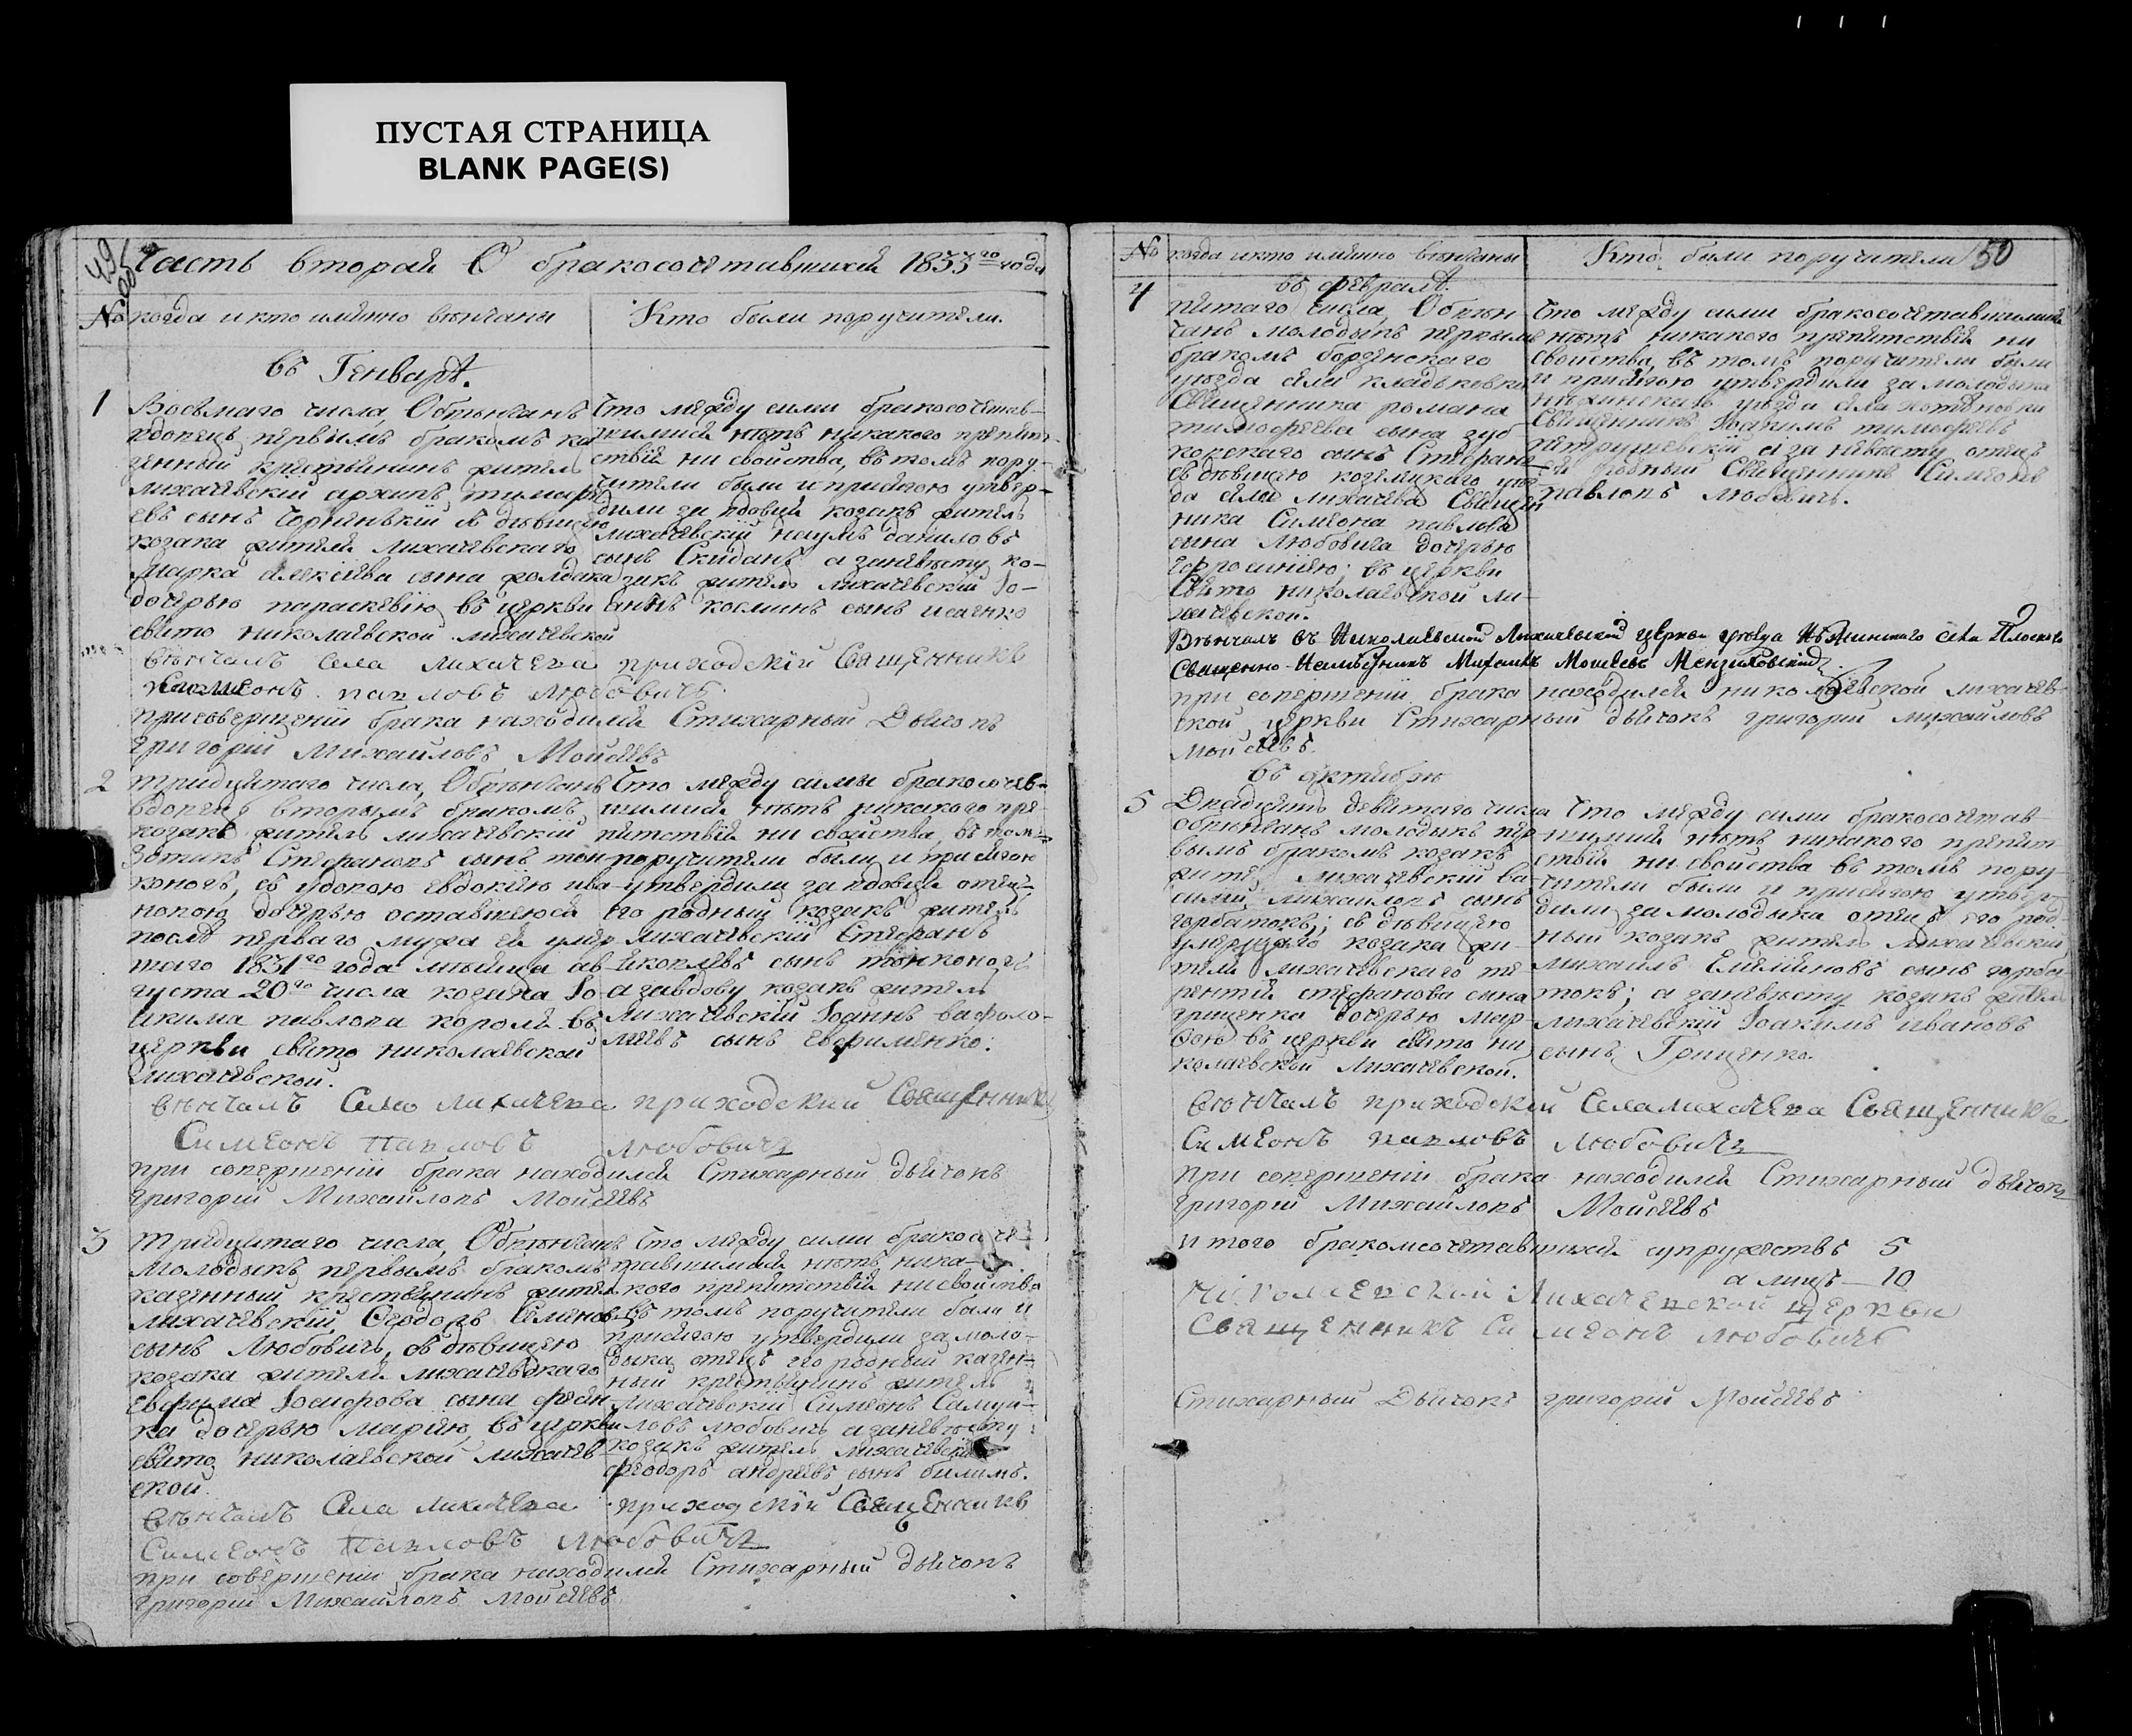 ПУСТАЯ СТРАНИЦА
BLANK PAGE(S)
49
Часть вторая О бракосочетавшихся 1833го года
№ когда и кто именно венчаны
Кто были поручители.
въ Генваре.
1
Восьмаго числа, Обвенчанъ
вдовецъ первымъ бракомъ ка
зенный крестьянинъ житель
лихачевскій архипъ тимофе
евъ сынъ Чорненькій съ девицею
козака жителя Лихачевскаго
марка алексеева сына
дочерью параскевіею въ церкви
свято николаевской лихачевской
Что между сими бракосочетав-
шимися нетъ никакого препят-
ствія ни свойства, въ томъ пору-
чители были и присягою утвер-
дили за вдовца козакъ житель
лихачевскій наумъ даниловъ
сынъ Скиданъ а заневесту ко-
закъ житель лихачевскій Іо-
аннъ косминъ сынъ исаенко
венчалъ села лихачева приходскій Священникъ
Симеонъ павловъ любовичъ
при совершеніи брака находился Стихарный Дьячокъ
григорій Михайловъ Мойсеевъ
2
тридцятаго числа, Обвенчанъ
вдовецъ вторымъ бракомъ
козакъ житель лихачевскій
Зотикъ Стефановъ сынъ тон
коногъ, съ удовою евдокіею ива
новою дочерью оставшеюся
после перваго мужа ея умер
шаго 1831го года месяца ав
густа 20го числа козака Іо
акима павлова короля въ
церкви свято николаевской
лихачевской.
Что между сими бракосочетав-
шимися нетъ никакого пре-
пятствія ни свойства, въ томъ
поручители были и присягою
утвердили за вдовца отецъ
его родный козакъ житель
лихачевскій Стефанъ
яковлевъ сынъ тонконогъ
а завдову козакъ житель
лихачевскій Іоаннъ вафоло-
меевъ сынъ евфименко.
венчалъ Села лихачева приходскій Священникъ
Симеонъ Павловъ любовичъ
при совершеніи брака находился Стихарный дьячокъ
григорій Михайловъ Мойсеевъ
3
тридцятаго числа, Обвенчанъ
молодыкъ первымъ бракомъ
казенный крестьянинъ житель
лихачевскій Феодоръ Семеновъ
сынъ Любовичъ, съ девицею
козака жителя лихачевскаго
евфима Іосифова сына
дочерью маріею, въ церкви
свято николаевской лихачев
ской.
Что между сими бракосоче-
тавшимися нетъ ника-
кого препятствія ни свойства
въ томъ поручители были и
присягою утвердили за моло-
дыка отецъ его родный казен-
ный крестьянинъ житель
Лихачевскій Симеонъ Самуи-
ловъ любовичъ а заневесту
козакъ житель лихачевскій
феодоръ андреевъ сынъ билимъ.
венчалъ Села лихачева приходскій Священникъ
Симеонъ Павловъ любовичъ
при совершеніи брака находился Стихарный дьячокъ
григорій Михайловъ Мойсеевъ
№ когда и кто именно венчаны
Кто были поручители
50
въ феврале.
4
пятаго числа, Обвен-
чанъ молодыкъ первымъ
бракомъ борзенскаго
уезда села кладьковки
Священника романа
тимофеева сына зуб
ковскаго сынъ Стефанъ
съ девицею козелецкаго уез
да села лихачева Священ
ника Симеона павлова
сына любовича дочерью
евфросиніею; въ церкви
Свято николаевской ли-
хачевской.
Что между сими бракосочетавшимися
нетъ никакого препятствія ни
свойства, въ томъ поручители были
и присягою утвердили за молодыка
нежинскаго уезда села хотеновки
Священникъ Іоакимъ тимофеевъ
петрушевскій а за невесту отецъ
ея родный Священникъ Симеонъ
павловъ любовичъ.
Венчалъ въ Николаевской Лихачевской церкви уезда Нежинскаго села Плоскаго
Священно-Наместникъ Михаилъ Мойсеевъ Мензиховскій
при совершеніи брака находился николаевской лихачев-
ской церкви Стихарный дьячокъ григорій михайловъ
мойсеевъ.
въ октябре
5
Двадцять девятаго числа
обвенчанъ молодыкъ пер-
вымъ бракомъ козакъ
житель лихачевскій ва-
силій михайловъ сынъ
горбатокъ; съ девицею
умершаго козака жи-
теля лихачевскаго те
рентія стефанова сына
грищенка дочерью мар-
фою въ церкви свято ни
колаевской Лихачевской.
Что между сими бракосочетав-
шимися нетъ никакого препят
ствія ни свойства въ томъ пору-
чители были и присягою утвер-
дили за молодыка отецъ его род-
ный козакъ житель лихачевскій
михаилъ Емельяновъ сынъ горба-
токъ; а заневесту козакъ житель
лихачевскій Іоакимъ ивановъ
сынъ Грищенко.
венчалъ приходскій Села лихачева Священникъ
Симеонъ павловъ любовичъ
при совершеніи брака находился Стихарный дьячокъ
григорій Михайловъ Мойсеевъ
итого бракомсочетавшихся супружествъ 5
а лицъ — 10
Николаевской Лихачевской церкви
Священникъ Симеонъ любовичъ
Стихарный Дьячокъ григорій Мойсеевъ